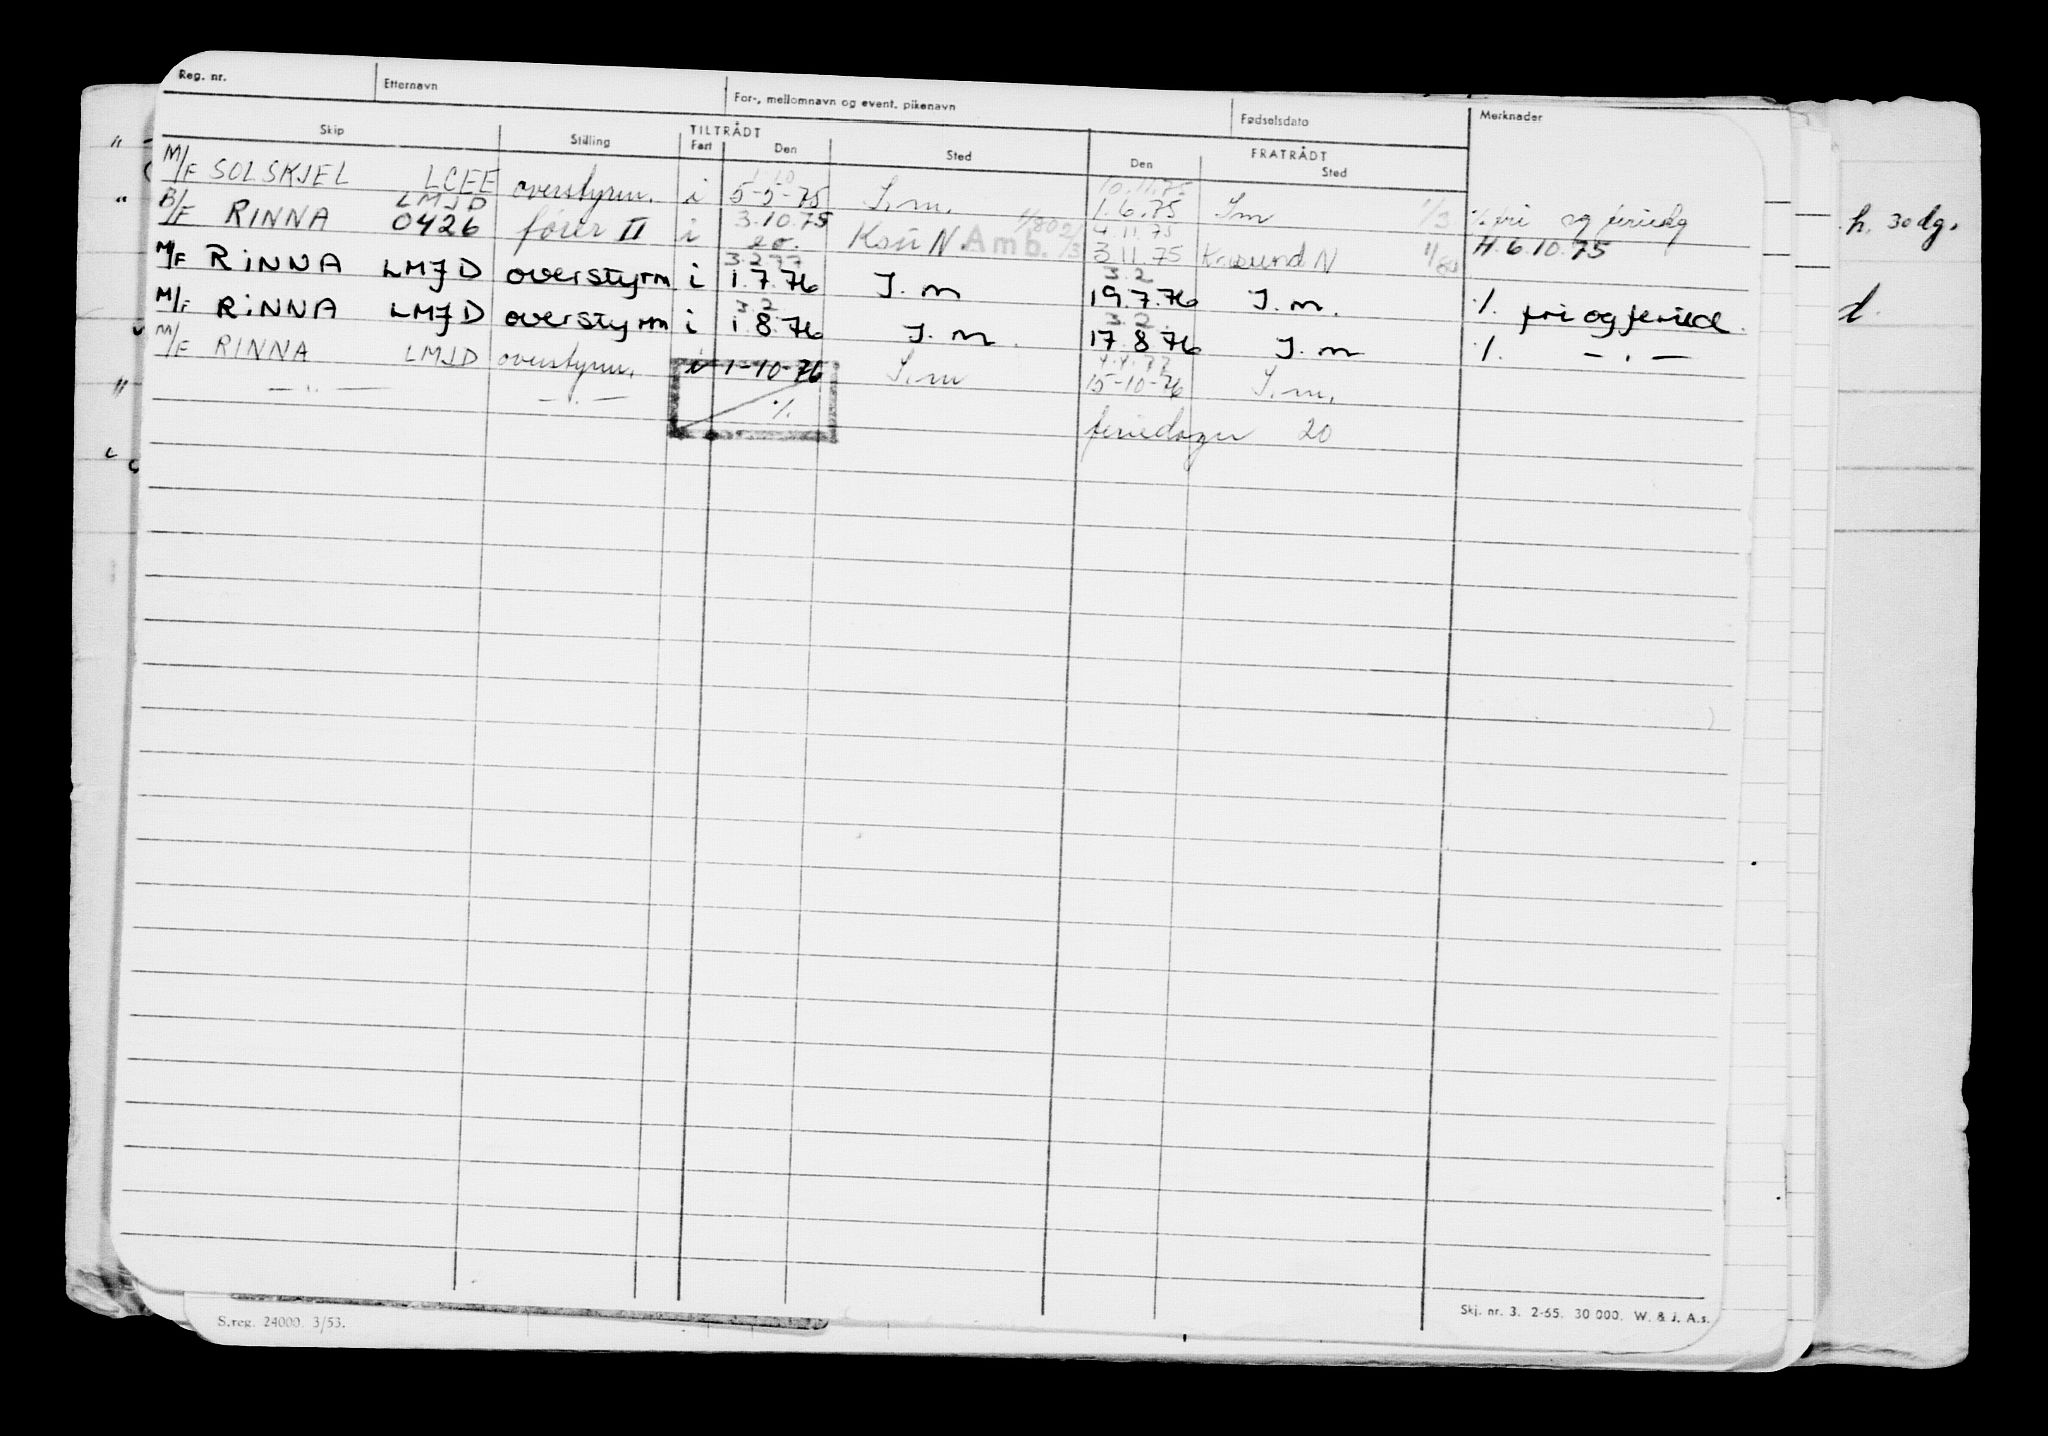 Reg. nr. Etternavn For-, mellomnavn og event. pikenavn Fødselsdato Merknader
Skip Stilling TILTRÅDT FRATRÅDT
Fart Den Sted Den Sted
M/F SOLSKJEL LCEE overstyrm. i 5-5-75 I.m. 1.6.75 I m % fri og feriedg
10.11.75
LMJD
B/F RINNA 0426 fører II i 3.10.75 Ksu N. Amb. 3.11.75 Kr.sund N H. 6.10.75
4.11.75
3.2 77 3.2
M/F RINNA LMJD overstyrm i 1.7.76 I. m 19.7.76 I. m. %. fri og feried.
3.2 3.2.
M/F RINNA LMJD overstyrm i 1.8.76 I. m. 17.8.76 I. m %. — . —
4.4.77
M/F RINNA LMJD overstyrm. i 1-10-76 I.m 15-10-76 I.m.
— " — — . — %. feriedager 20
h. 30 dg.
S.reg. 24000. 3/53.
Skj. nr. 3. 2-65. 30 000. W. & J. A.s.